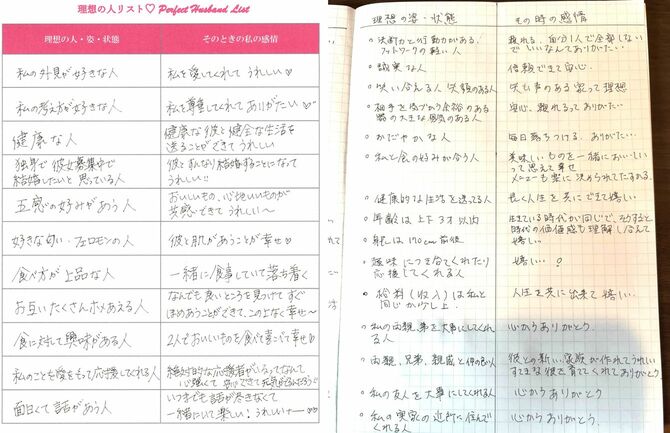 理想の人リスト♡ Perfect Husband List
理想の人・姿・状態
そのときの私の感情
私の外見が好きな人
私を愛してくれて うれしい♡
私の考え方が好きな人
私を尊重してくれてありがたい♡
健康な人
健康な彼と健全な生活を
送ることができて うれしい
独身で彼女募集中で
結婚したいと思っている人
彼とすんなり結婚することになって
うれしい♡
五感の好みがあう人
おいしいもの、心地いいものが
共感できて うれしい〜
好きな匂い・フェロモンの人
彼と肌があうことが幸せ♡
食べ方が上品な人
一緒に食事していて落ち着く
お互いたくさんホメあえる人
なんでも良いところを見つけて すぐ
ほめあうことができて、このよなく幸せ〜
食に対して興味がある人
2人でおいしいものを食べて喜べて幸せ♡
私のことを愛をもって応援してくれる人
絶対的な応援者がいるってなんて
心強くて
面白くて話があう人
いつまでも話が尽きなくて
一緒にいて楽しい！うれしいナー♡
理想の姿・状態
その時の感情
決断力と行動力がある、
フットワークの軽い人
頼れる。自分1人で全部しないで
いいなんてありがたい…
誠実な人
信頼できて安心。
笑い合える人 笑顔のある人
笑い声のある家って理想
相手を気づかう余裕のある
器の大きな
安心、頼れるってありがたい
おだやかな人
毎日落ちつける。ありがたい。
私と食の好みが合う人
美味しいものを一緒においしい
って思えて幸せ
メニューも楽に決められてたすかる。
健康的な生活を送ってる人
長く人生を共にできて嬉しい
年齢は上下3才以内
生きている時代が同じで、そうすると
時代の価値感も理解し合えて
嬉しい。
身長は170cm前後
趣味につき合ってくれたり
応援してくれる人
嬉しい…?
給料（収入）は私と
同じか少し上。
人生を共に出来て嬉しい。
私の両親、弟を大事にしてくれ
る人
心からありがとう。
両親、兄弟、親戚と仲の良い人
彼との新しい家族が作れてうれしい
すてきな彼を育ててくれてありがとう
私の友人を大事にしてくれる人
心からありがとう
私の実家の近所に住んで
くれる人
心からありがとう。